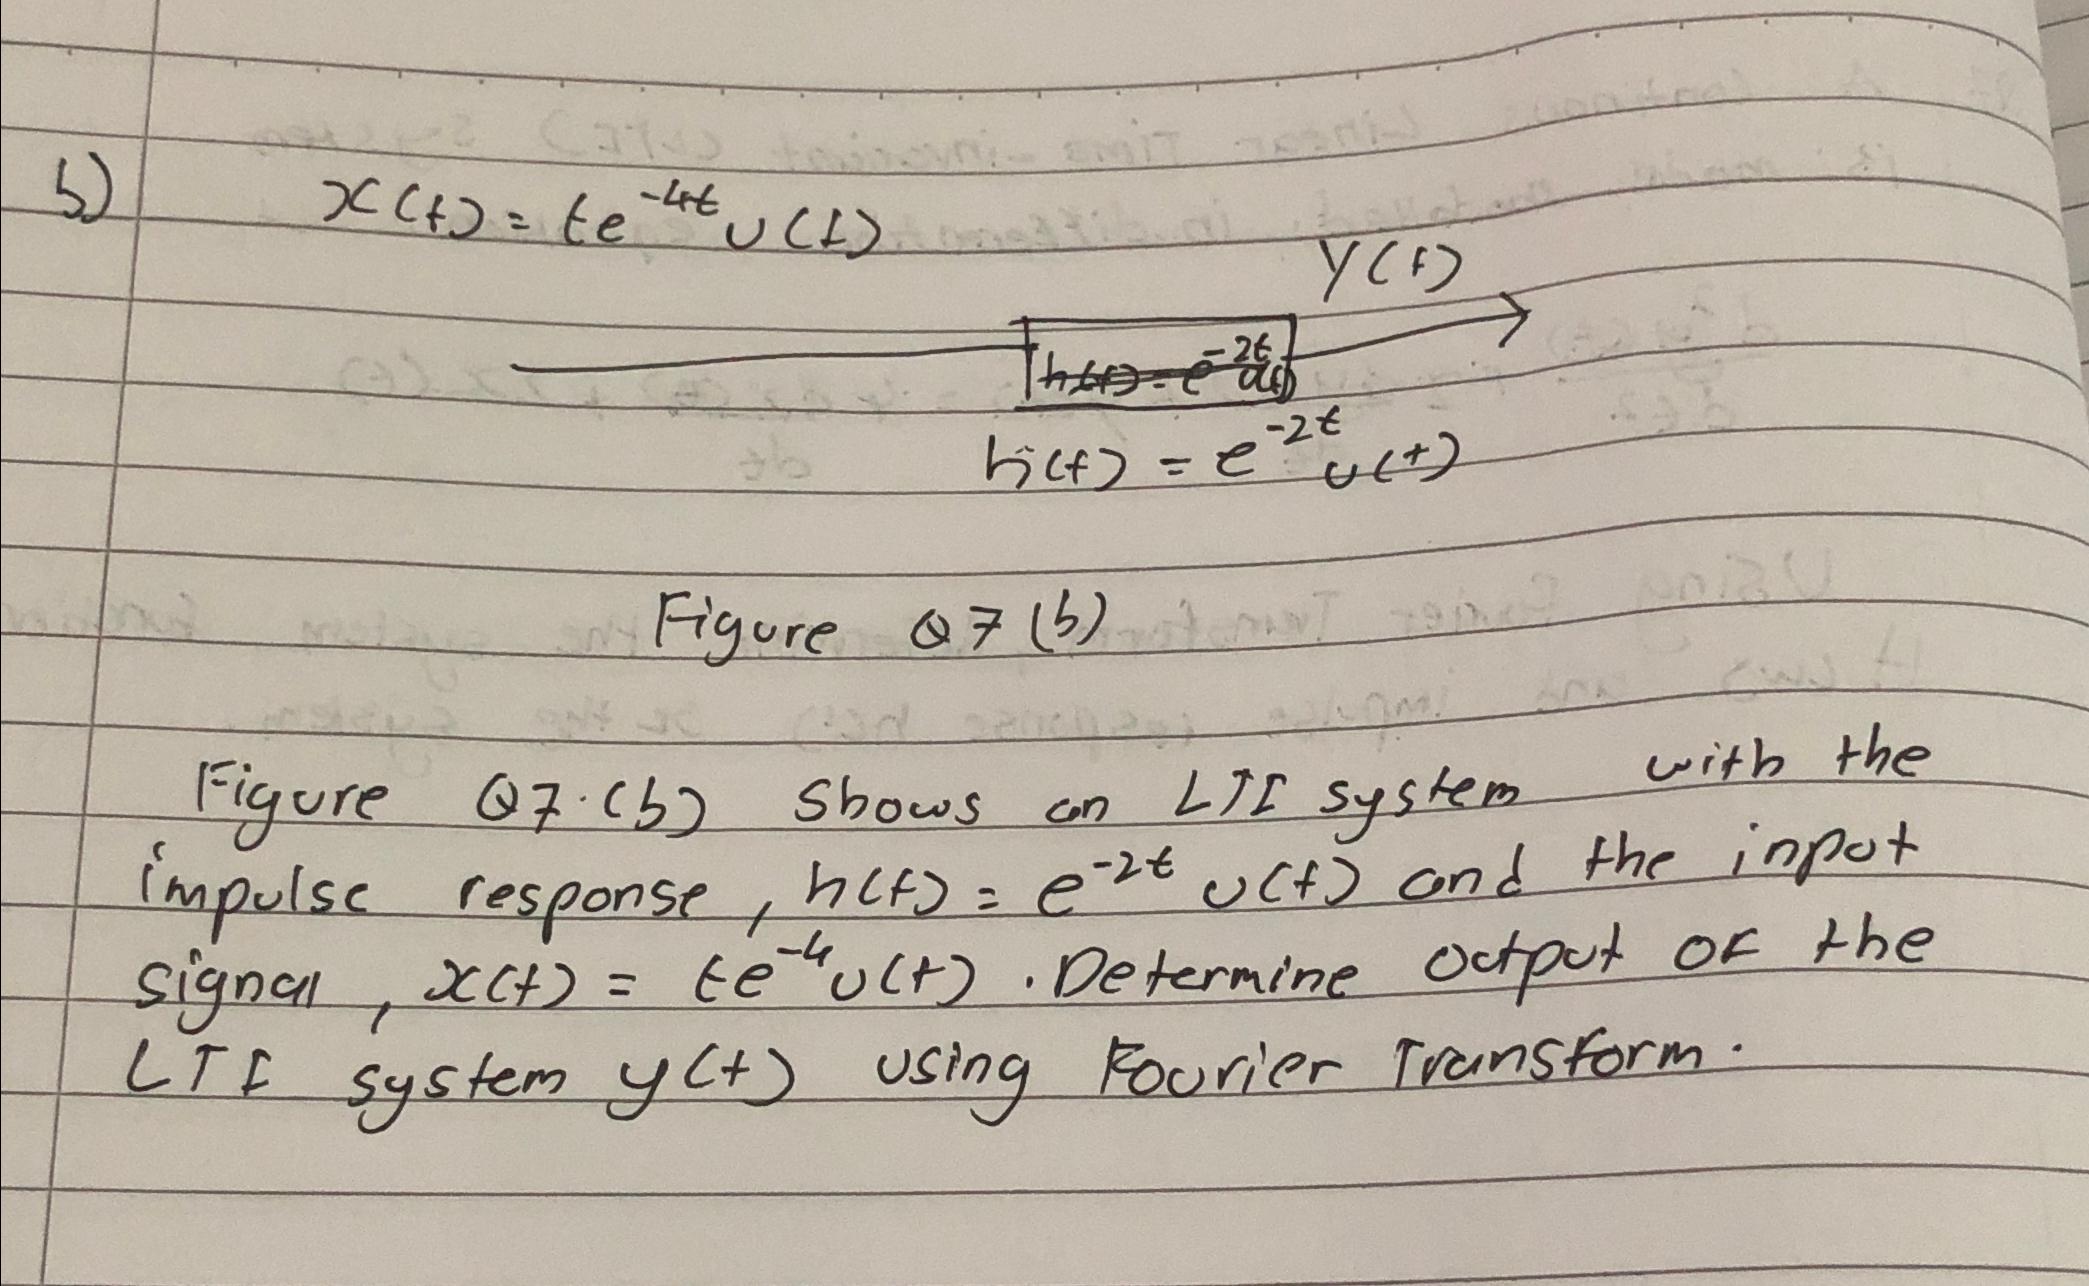 b) x(t) = te^-4t u(t)
y(t)
h(t) = e^-2t u(t)
h(t) = e^-2t u(t)
Figure Q7 (b)
Figure Q7.(b) shows an LTI system with the
impulse response, h(t) = e^-2t u(t) and the input
signal, x(t) = te^-4 u(t). Determine output of the
LTI system y(t) using Fourier Transform.